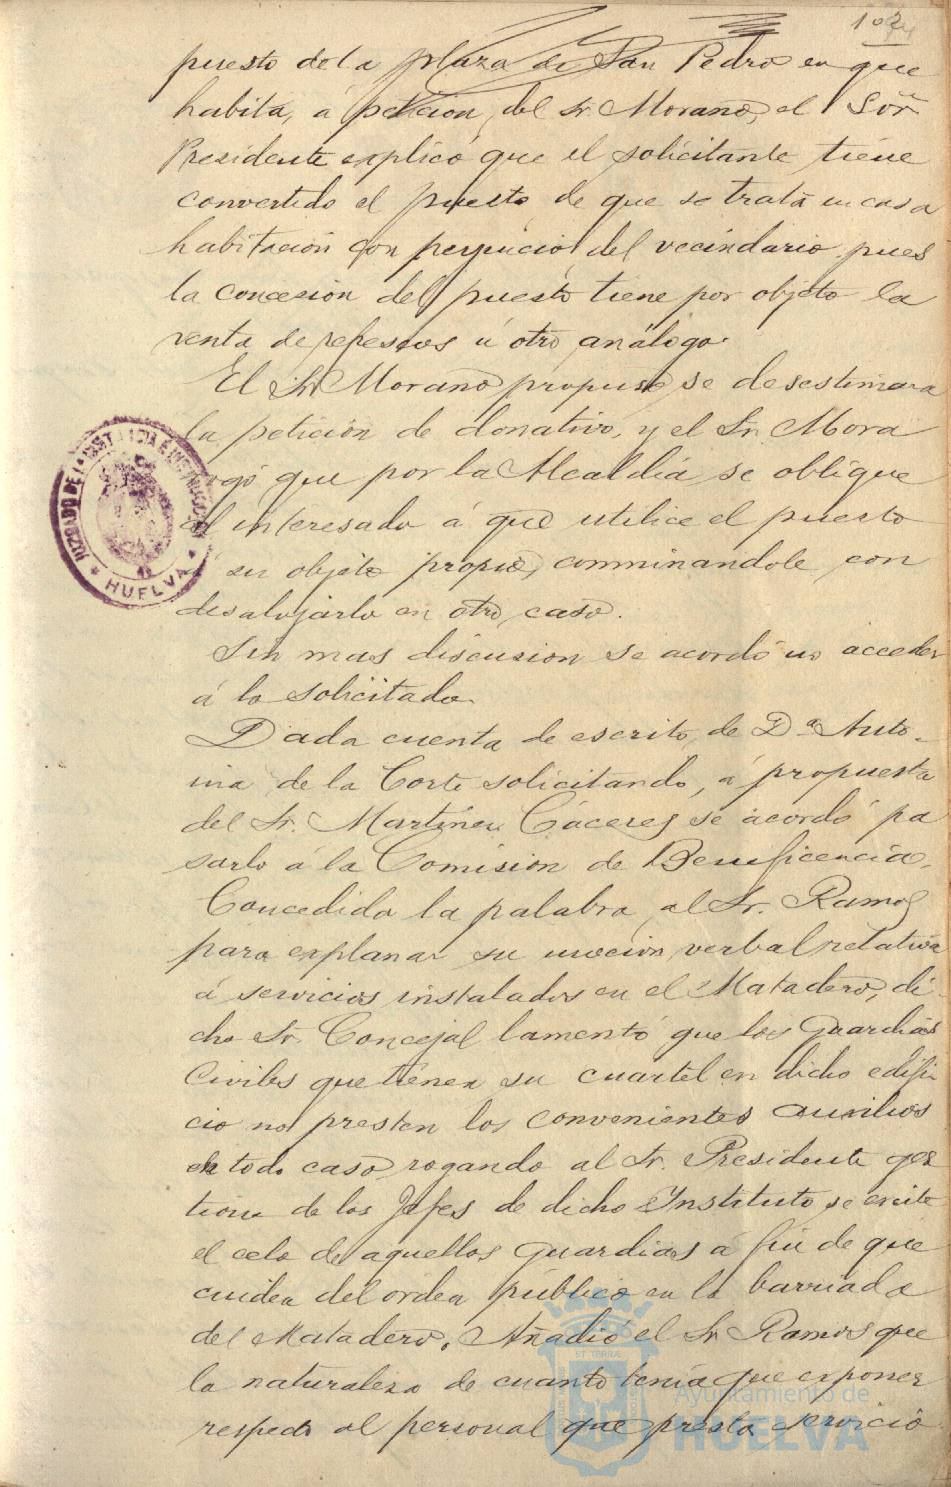 102
puesto de la plaza de San Pedro en que
habita, á petición, del Sr. Morano, el Señr.
Presidente explicó que el solicitante tiene
convertido el puesto de que se trata en casa
habitación con perjuicio del vecindario pues
la concesión del puesto tiene por objeto la
venta de refrescos ú otro análogo.
El Sr. Morano propuso se desestimara
la petición de donativo, y el Sr. Mora
rogó que por la Alcaldía se oblígue
al interesado á que utilice el puesto
á su objeto propio, conminandole con
desalojarlo en otro caso.
Sin mas discusion se acordó no acceder
á lo solicitado.
Dada cuenta de escrito, de Dª Anto-
nia de la Corte solicitando, á propuesta
del Sr. Martinez Cáceres se acordó pa
sarlo á la Comisión de Beneficencia.
Concedida la palabra al Sr. Ramos
para explanar su moción verbal relativa
á servicios instalados en el Matadero, di-
cho Sr. Concejal lamentó que los Guardias
Civiles que tienen su cuartel en dicho edifi-
cio no presten los convenientes auxilios
en todo caso rogando al Sr. Presidente ges
tione de los Jefes de dicho Ynstituto se excite
el celo de aquellos guardias á fin de que
cuiden del orden público en la barriada
del Matadero. Añadió el Sr. Ramos que
la naturaleza de cuanto tenía que exponer
respecto al personal que presta servicio
JUZGADO DE 1ª INSTANCIA É INSTRUCCION
* HUELVA *
Ayuntamiento de
HUELVA